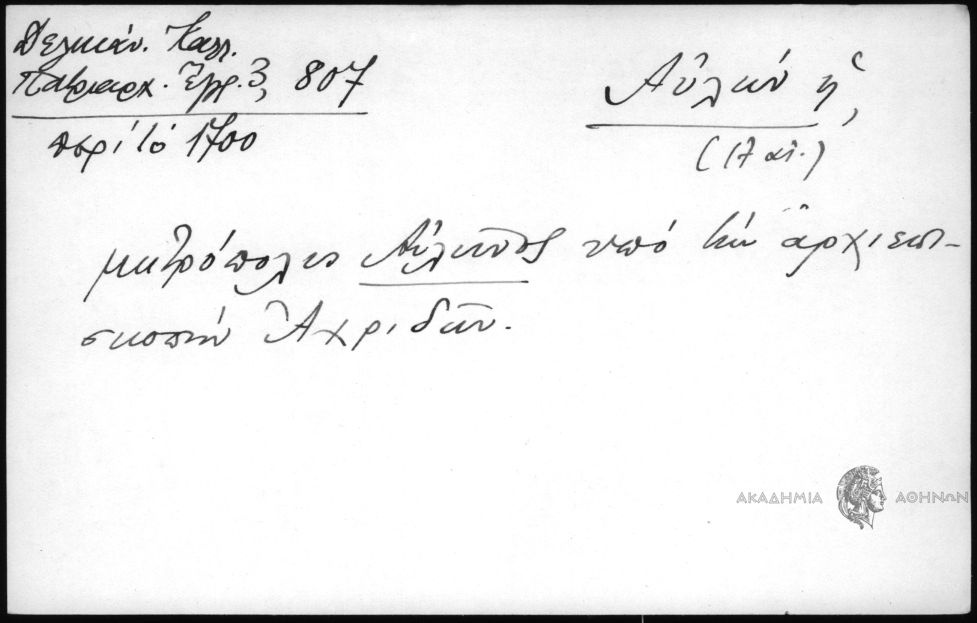 Δελικάν. Καλλ.
Πατριαρχ. Ἔγγρ. 3, 807
περὶ τὸ 1700
Αὐλών ἡ,
(17 αἰ.)
μητρόπολις Αὐλῶνος ὑπό τὴν ἀρχιεπι-
σκοπήν Ἀχριδῶν.
ΑΚΑΔΗΜΙΑ ΑΘΗΝΩΝ